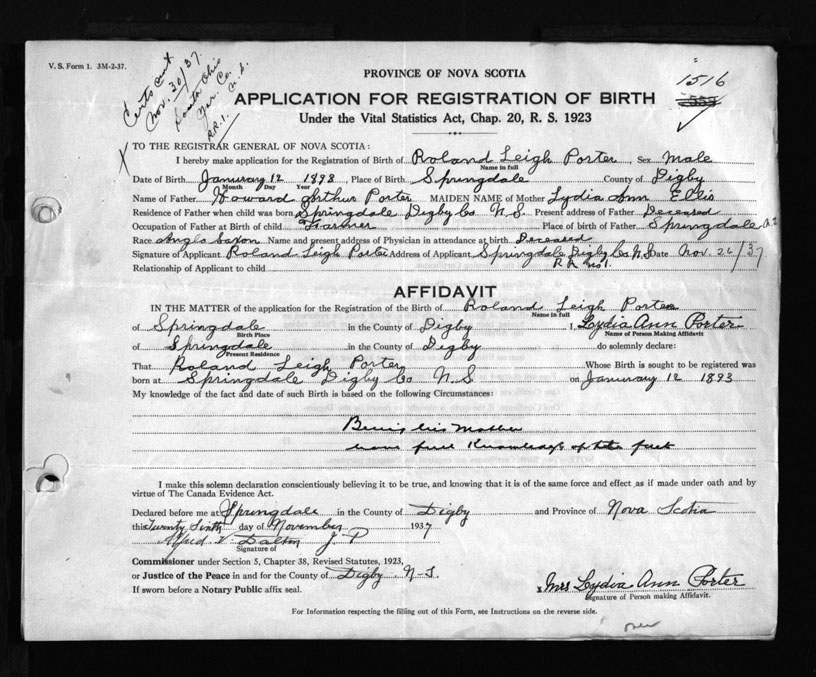 V. S. Form 1. 3M-2-37.
Certs sent
Nov. 30/37.
R.R. 1.
PROVINCE OF NOVA SCOTIA
1516
APPLICATION FOR REGISTRATION OF BIRTH
Under the Vital Statistics Act, Chap. 20, R. S. 1923
X TO THE REGISTRAR GENERAL OF NOVA SCOTIA:
I hereby make application for the Registration of Birth of Roland Leigh Porter, Sex Male
Name in full
Date of Birth January 12 1893, Place of Birth Springdale County of Digby
Month Day Year
Name of Father Howard Arthur Porter MAIDEN NAME of Mother Lydia Ann Ellis
Residence of Father when child was born Springdale Digby Co N. S. Present address of Father Deceased
Occupation of Father at Birth of child Farmer Place of birth of Father Springdale
Race Anglo Saxon Name and present address of Physician in attendance at birth Deceased
Signature of Applicant Roland Leigh Porter Address of Applicant Springdale Digby Co N.S Date Nov. 26/37
R R No 1.
Relationship of Applicant to child
AFFIDAVIT
IN THE MATTER of the application for the Registration of the Birth of Roland Leigh Porter
Name in full
of Springdale in the County of Digby I, Lydia Ann Porter
Birth Place Name of Person Making Affidavit
of Springdale in the County of Digby do solemnly declare:
Present Residence
That Roland Leigh Porter Whose Birth is sought to be registered was
born at Springdale Digby Co N.S on January 12 1893
My knowledge of the fact and date of such Birth is based on the following Circumstances:
Being his Mother
have full Knowledge of the fact
I make this solemn declaration conscientiously believing it to be true, and knowing that it is of the same force and effect as if made under oath and by
virtue of The Canada Evidence Act.
Declared before me at Springdale in the County of Digby and Province of Nova Scotia
this Twenty Sixth day of November 1937
Alfred V. Dalton J P
Signature of
Commissioner under Section 5, Chapter 38, Revised Statutes, 1923,
or Justice of the Peace in and for the County of Digby N-S.
If sworn before a Notary Public affix seal.
x Mrs Lydia Ann Porter
Signature of Person making Affidavit.
For Information respecting the filling out of this Form, see Instructions on the reverse side.
over